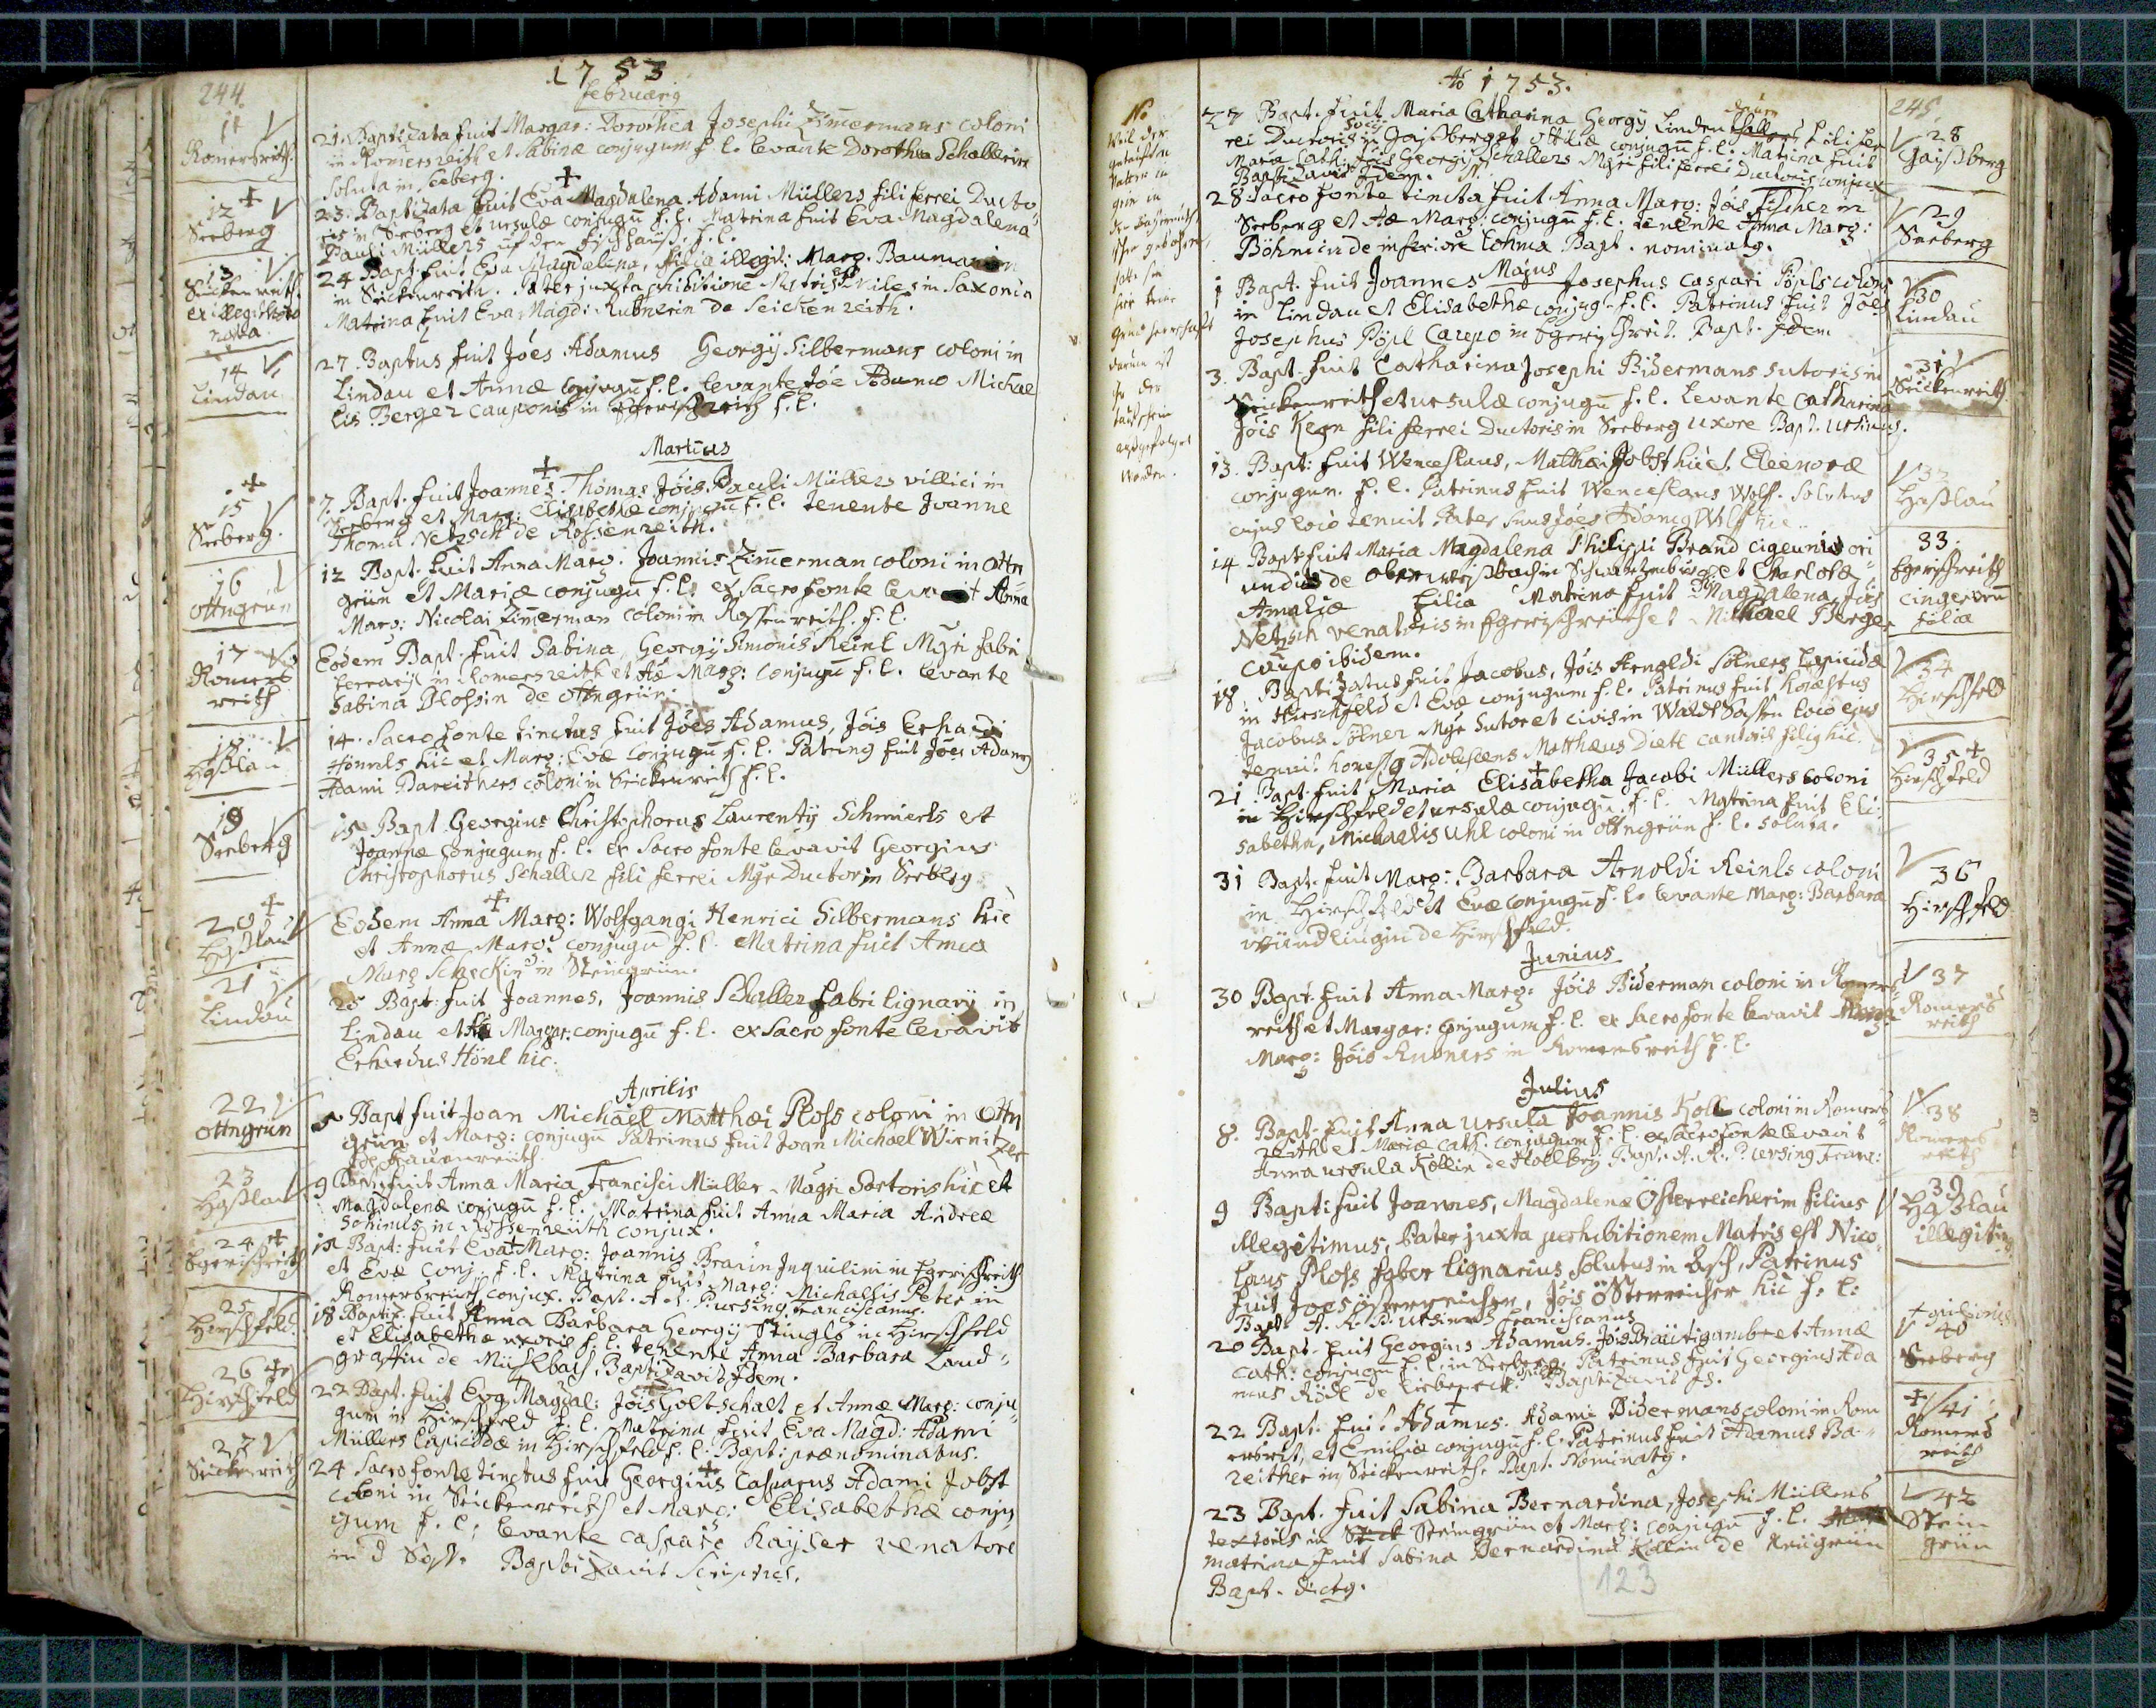 244.
1753
Februarÿ
11
Romersreith.
21. Baptizata fuit Margar: Dorothea Josephi Zimermans coloni
in Romersreith et Sabinæ conjugum f. l. levante Dorothea Schallerin
soluta in Seeberg.
12 +
Seeberg
23. Baptizata fuit Eva Magdalena Adami Müllers fili ferrei Ducto
ris in Seeberg et Ursulæ conjugū f. l. Matrina fuit Eva Magdalena
Pauli Müllers
13
Seickenreith
ex illegitimo
24 Bapt. fuit Eva Magdalena, filia illegit: Marg. Baumanin
in Seickenreith. Pater juxta Matris est Miles in Saxonia
Matrina fuit Eva Magd: Rubnerin de Seickenreith.
14
Lindau
27. Baptus fuit Jões Adamus Georgÿ Silbermans coloni in
Lindau et Annæ conjugū f. l. levante Jōe Adamo Michae
lis Berger cauponis in Egerischreith f. l.
Martius
15 +
Seeberg.
7. Bapt. fuit Joannes Thomas Jōis Pauli Müllers villici in
Seeberg et Marg: Elisabethæ conjugū f. l. tenente Joanne
Thoma Netzsch de Rossenreith.
16
Ottngrün
12 Bapt. fuit Anna Marg: Joannis Zimerman coloni in Ottn
grün et Mariæ conjugū f. l. ex Sacro fonte levavit Anna
Marg: Nicolai Zimerman coloni in Rossenreith. f. l.
17
Romers
reith
Eodem Bapt. fuit Sabina, Georgÿ Simonis Reinl Mgri fabri
ferrarÿ in Romersreith et Aæ Marg: conjugū f. l. levante
Sabina Plossin de Ottngrün.
18
Haßlau
14. Sacro fonte tinctus fuit Jões Adamus, Jōis Erhardi
Hönnls hic et Marg: Evæ conjugū f. l. Patring fuit Jões Adamg
Adami Bareithers coloni in Seickenreith f. l.
19
Seeberg
15 Bapt Georgius Christophorus Laurentÿ Schmierls et
Joannæ conjugum f. l. ex Sacro fonte levavit Georgius
Christophorus Schaller fili ferrei Mgr Ductor in Seeberg
20 +
Haßlau
Eodem Anna Marg: Wolfgangi Henrici Silbermans hic
et Annæ Marg: conjugū f. l. Matrina fuit Anna
Marg Scheckin in Steingrün.
21
Lindau
25 Bapt: fuit Joannes, Joannis Schaller fabri lignarÿ in
Lindau et Aæ Margar: conjugū f. l. ex Sacro fonte levavit
Erhardus Hönl hic.
Aprilis
22
Ottngrün
5 Bapt fuit Joan Michael Matthæi Ploss coloni in Ottn
grün et Marg: conjugū Patrinus fuit Joan Michael Wirnitzer
de Frauenreith.
23
Haßlau
9 Bapt. fuit Anna Maria Francisci Müller Magri Sartoris hic et
Magdalenæ conjugū f. l. Matrina fuit Anna Maria Andreæ
in Rossenreith conjux.
24 +
Egerischreith
12 Bapt: fuit Eva Marg: Joannis Braun Inquilini in Egerischreith
et Evæ conj. f. l. Matrina fuit Marg: Michaelis Peter in
Romersreith conjux. Bapt. A. R. P. Ursing Franciscanus.
25
Hirschfeld
18 Baptiz. fuit Anna Barbara Georgÿ Stingls in Hirschfeld
et Elisabethæ uxoris f. l. tenente Anna Barbara Land
grafin de Mühlbach. Baptizavit Idem.
26 +
Hirschfeld
22 Bapt. fuit Eva Magdal: Jōis Goltschalt et Annæ Marg: conju
gum in Hirschfeld f. l. Matrina fuit Eva Magd: Adami
Müllers lapicidæ in Hirschfeld f. l. Bapt: prænominatus.
27
Seickenreith
24 Sacro fonte tinctus fuit Georgius Casparus Adami Jobst
coloni in Seickenreith et Marg: Elisabethæ conju
gum f. l. levante Casparo Kayser venatore
in Baptizavit
245.
Aō 1753.
No
Weil der
in
der
hier keine
Grundherrschaft
darum ist
der
Taufschein
worden.
27 Bapt. fuit Maria Catharina Georgÿ Linden fili fer
rei Ductoris in Gaißberg et Ottiliæ conjugū f. l. Matrina fuit
Maria Cath: Jōis Georgÿ Schallers Mgri fili ferrei Ductoris conjux
Baptizavit Idem. N.
28
Gaißberg
28 Sacro fonte tincta fuit Anna Marg: Jōis Fischer in
Seeberg et Aæ Marg: conjugū f. l. tenente Anna Marg:
Böhmin de inferiore Lohma Bapt. nominatg.
29
Seeberg
Majus
1 Bapt. fuit Joannes Josephus Caspari Pöpls coloni
in Lindau et Elisabethæ conjug. f. l. Patrinus fuit Jões
Josephus Pöpl Caupo in Egerischreit. Bapt. Idem
30
Lindau
3. Bapt. fuit Catharina Josephi Bidermans sutoris in
Seickenreith et Ursulæ conjugū f. l. Levante Catharina
Jōis Kern fili ferrei Ductoris in Seeberg uxore Bapt. Ursinus.
31
Seickenreith
13. Bapt: fuit Wenceslaus, Matthæi Jobst hic et Eleonoræ
conjugum. f. l. Patrinus fuit Wenceslaus Wolf. Solutus
cujus loco tenuit Pater suus Jões Adamg Wolf hic
32
Haßlau
14 Bapt. fuit Maria Magdalena Philippi Brand cigeuni ori
undi de Oberweißbach in Schwartzenburg et Charlotæ
Amaliæ filia Matrina fuit Magdalena Jōis
Netzsch venatoris in Egerischreith et Michael Berger
caupo ibidem.
33.
Egerischreith
cingerum
filia
18. Baptizatus fuit Jacobus, Jōis Arnoldi Sölners lapicidæ
in Hirschfeld et Evæ conjugum f. l. Patrinus fuit honestus
Jacobus Sölner Mgr Sutor et civis in Waldsassen loco ejus
tenuit honestg Adolescens Matthæus Dietl cantoris filig hic
34
Hirschfeld
21 Bapt. fuit Maria Elisabetha Jacobi Müllers coloni
in Hirschfeld et Ursulæ conjugū f. l. Matrina fuit Eli
sabetha, Michaelis Uhl coloni in Ottngrün f. l. soluta.
35 +
Hirschfeld
31 Bapt. fuit Marg: Barbara Arnoldi Reinls coloni
in Hirschfeld et Evæ conjugū f. l. levante Marg: Barbara
de Hirschfeld.
36
Hirschfeld
Junius
30 Bapt. fuit Anna Marg: Jōis Biderman coloni in Romers
reith et Margar: conjugum f. l. ex Sacro fonte levavit
Marg: Jōis Rubners in Romersreith f. l.
37
Romers
reith
Julius
8. Bapt. fuit Anna Ursula Joannis Koll coloni in Romers
reith et Mariæ Cath: conjugum f. l. ex Sacro fonte levavit
Anna Ursula Köllin de Bapt. A. R. P. Ursing Franc:
38
Romers
reith
9 Bapt: fuit Joannes, Magdalenæ Österreicherin filius
illegitimus, Pater juxta perhibitionem Matris est Nico
laus Ploss faber lignarius solutus in Asch, Patrinus
fuit Joes österreicher, Jōis öSterreicher hic f. l.
Bapt A. R. P. Ursinus Franciscanus
39
Haßlau
illegitimg
20 Bapt. fuit Georgius Adamus. Jōis Bräutigambs et Annæ
Cath: conjugū f. l. in Seeberg. Patrinus fuit Georgius Ada
mus Rödl de Liebeneck. Baptizavit
40
Seeberg
22 Bapt. fuit Adamus. Adami Bidermans coloni in Rom
ersreit, et Emiliæ conjugū f. l. Patrinus fuit Adamus Ba
reither in Seickenreith. Bapt. Nominatg.
+ 41
Romers
reith
23 Bapt. fuit Sabina Bernardina, Josephi Müllers
textoris in Steingrün et Marg: conjugū f. l.
Matrina fuit Sabina Bernardina Köllin de Neügrün
Bapt. dictg.
42
Stein
grün
123